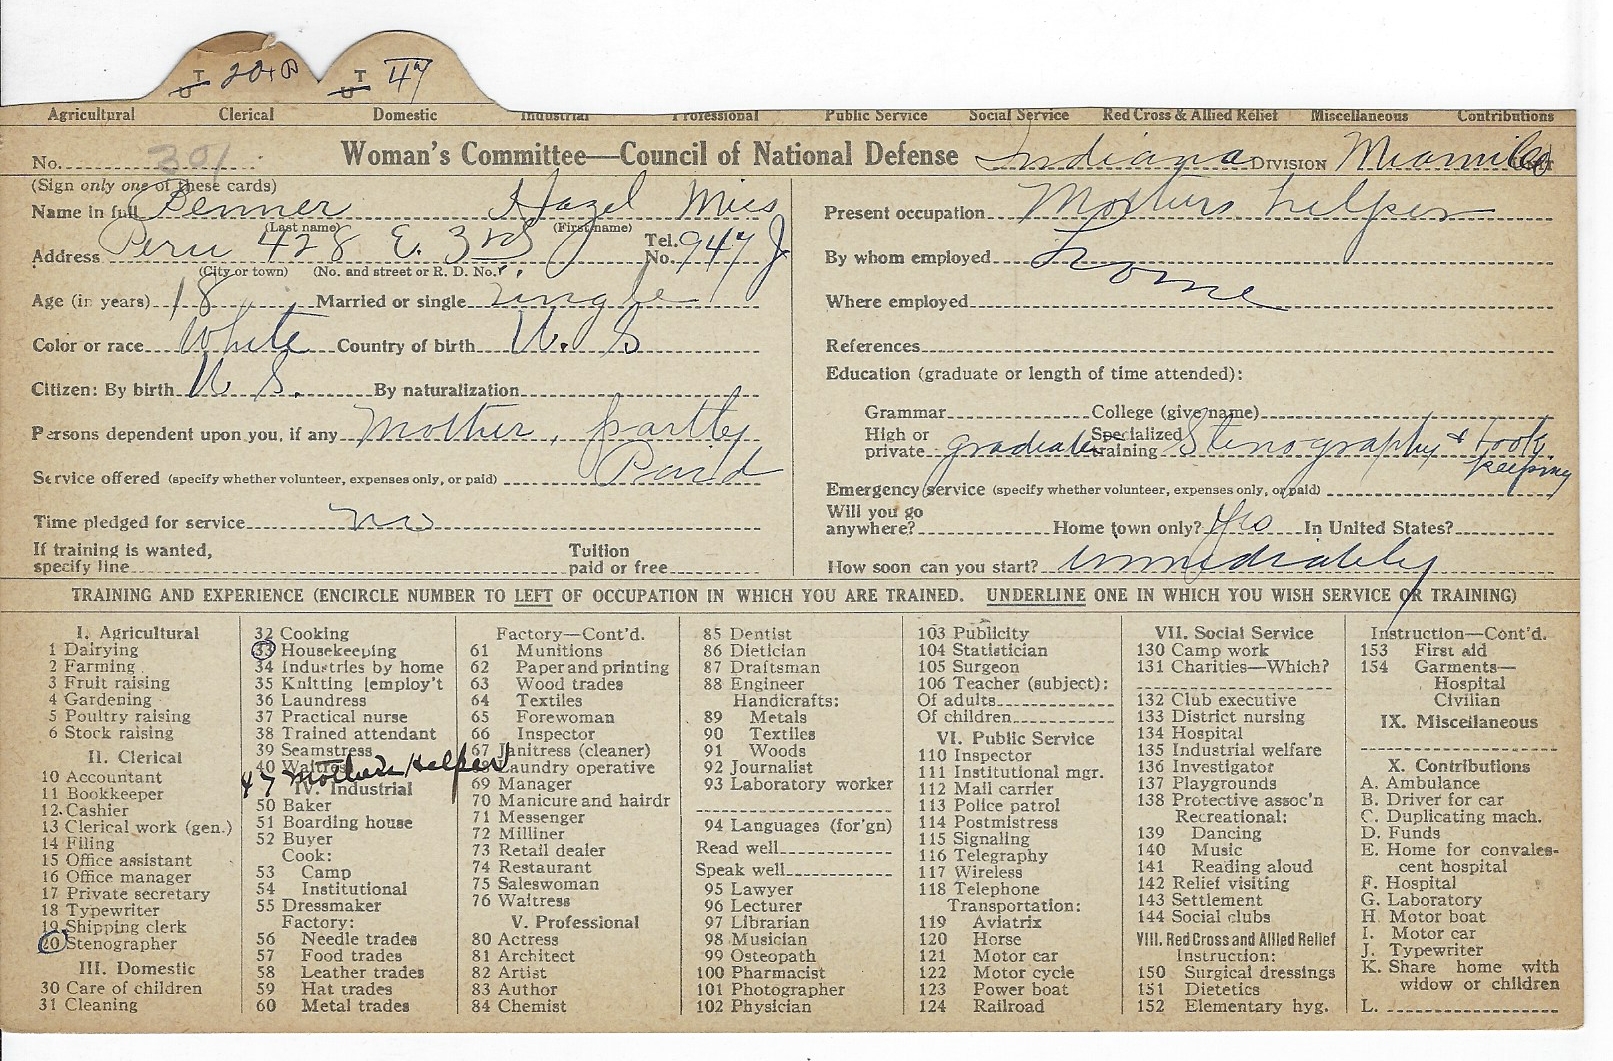 T 20+P T 47
U U
Agricultural Clerical Domestic Industrial Professional Public Service Social Service Red Cross & Allied Relief Miscellaneous Contributions
No. 301 Woman's Committee—Council of National Defense Indiana DIVISION Miami Co UNIT
(Sign only one of these cards)
Name in full Benner Hazel Miss
(Last name) (First name)
Address Peru 428 E. 3rd Tel. No. 947 J
(City or town) (No. and street or R. D. No.)
Age (in years) 18 Married or single single
Color or race White Country of birth U. S
Citizen: By birth U. S. By naturalization
Persons dependent upon you, if any Mother, partly
Service offered (specify whether volunteer, expenses only, or paid) Paid
Time pledged for service no
If training is wanted, specify line Tuition paid or free
Present occupation Mothers helper
By whom employed home
Where employed
References
Education (graduate or length of time attended):
Grammar College (give name)
High or private graduate Specialized training Stenography & book keeping
Emergency service (specify whether volunteer, expenses only, or paid)
Will you go anywhere? Home town only? Yes In United States?
How soon can you start? immediately
TRAINING AND EXPERIENCE (ENCIRCLE NUMBER TO LEFT OF OCCUPATION IN WHICH YOU ARE TRAINED. UNDERLINE ONE IN WHICH YOU WISH SERVICE OR TRAINING)
I. Agricultural
1 Dairying
2 Farming
3 Fruit raising
4 Gardening
5 Poultry raising
6 Stock raising
II. Clerical
10 Accountant
11 Bookkeeper
12 Cashier
13 Clerical work (gen.)
14 Filing
15 Office assistant
16 Office manager
17 Private secretary
18 Typewriter
19 Shipping clerk
20 Stenographer
III. Domestic
30 Care of children
31 Cleaning
32 Cooking
33 Housekeeping
34 Industries by home
35 Knitting [employ't
36 Laundress
37 Practical nurse
38 Trained attendant
39 Seamstress
40 Waitress
47 Mothers Helper
IV. Industrial
50 Baker
51 Boarding house
52 Buyer
Cook:
53 Camp
54 Institutional
55 Dressmaker
Factory:
56 Needle trades
57 Food trades
58 Leather trades
59 Hat trades
60 Metal trades
Factory—Cont'd.
61 Munitions
62 Paper and printing
63 Wood trades
64 Textiles
65 Forewoman
66 Inspector
67 Janitress (cleaner)
Laundry operative
69 Manager
70 Manicure and hairdr
71 Messenger
72 Milliner
73 Retail dealer
74 Restaurant
75 Saleswoman
76 Waitress
V. Professional
80 Actress
81 Architect
82 Artist
83 Author
84 Chemist
85 Dentist
86 Dietician
87 Draftsman
88 Engineer
Handicrafts:
89 Metals
90 Textiles
91 Woods
92 Journalist
93 Laboratory worker
94 Languages (for'gn)
Read well
Speak well
95 Lawyer
96 Lecturer
97 Librarian
98 Musician
99 Osteopath
100 Pharmacist
101 Photographer
102 Physician
103 Publicity
104 Statistician
105 Surgeon
106 Teacher (subject):
Of adults
Of children
VI. Public Service
110 Inspector
111 Institutional mgr.
112 Mail carrier
113 Police patrol
114 Postmistress
115 Signaling
116 Telegraphy
117 Wireless
118 Telephone
Transportation:
119 Aviatrix
120 Horse
121 Motor car
122 Motor cycle
123 Power boat
124 Railroad
VII. Social Service
130 Camp work
131 Charities—Which?
132 Club executive
133 District nursing
134 Hospital
135 Industrial welfare
136 Investigator
137 Playgrounds
138 Protective assoc'n
Recreational:
139 Dancing
140 Music
141 Reading aloud
142 Relief visiting
143 Settlement
144 Social clubs
VIII. Red Cross and Allied Relief
Instruction:
150 Surgical dressings
151 Dietetics
152 Elementary hyg.
Instruction—Cont'd.
153 First aid
154 Garments—
Hospital
Civilian
IX. Miscellaneous
X. Contributions
A. Ambulance
B. Driver for car
C. Duplicating mach.
D. Funds
E. Home for convales-
cent hospital
F. Hospital
G. Laboratory
H. Motor boat
I. Motor car
J. Typewriter
K. Share home with
widow or children
L.